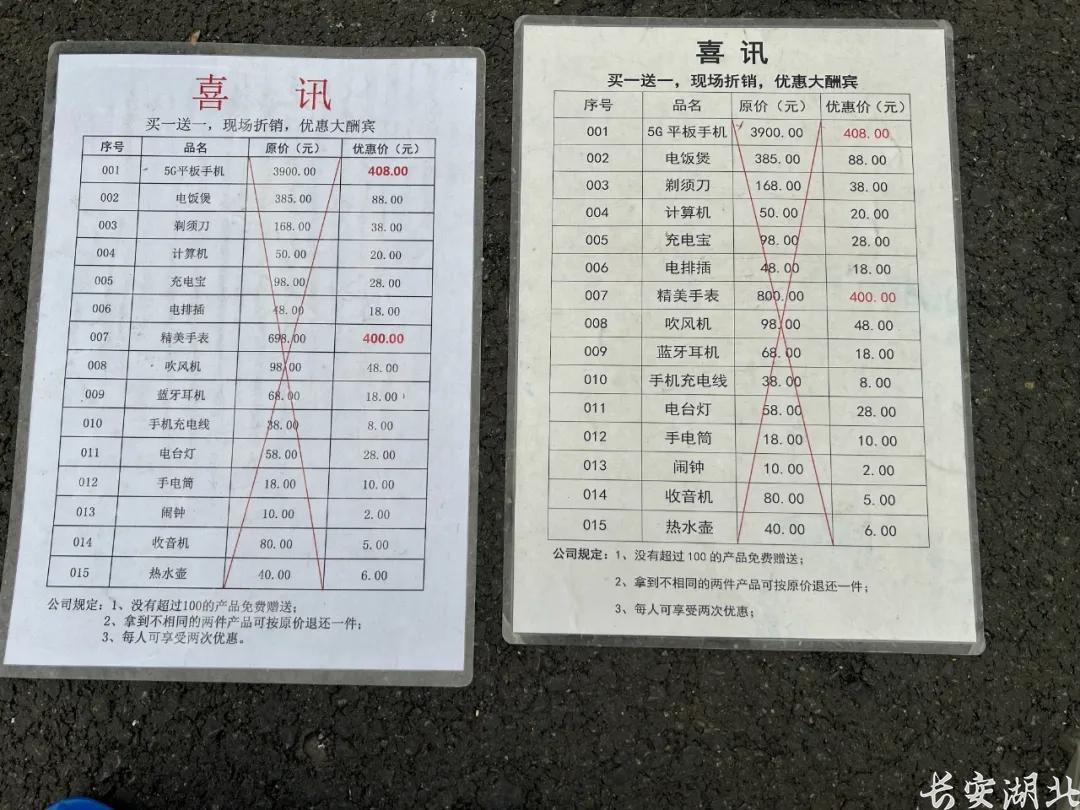 喜 讯
买一送一，现场折销，优惠大酬宾
序号 品名 原价（元） 优惠价（元）
001 5G平板手机 3900.00 408.00
002 电饭煲 385.00 88.00
003 剃须刀 168.00 38.00
004 计算机 50.00 20.00
005 充电宝 98.00 28.00
006 电排插 48.00 18.00
007 精美手表 698.00 400.00
008 吹风机 98.00 48.00
009 蓝牙耳机 68.00 18.00
010 手机充电线 38.00 8.00
011 电台灯 58.00 28.00
012 手电筒 18.00 10.00
013 闹钟 10.00 2.00
014 收音机 80.00 5.00
015 热水壶 40.00 6.00
公司规定：1、没有超过100的产品免费赠送；
2、拿到不相同的两件产品可按原价退还一件；
3、每人可享受两次优惠。
喜 讯
买一送一，现场折销，优惠大酬宾
序号 品名 原价（元） 优惠价（元）
001 5G 平板手机 3900.00 408.00
002 电饭煲 385.00 88.00
003 剃须刀 168.00 38.00
004 计算机 50.00 20.00
005 充电宝 98.00 28.00
006 电排插 48.00 18.00
007 精美手表 800.00 400.00
008 吹风机 98.00 48.00
009 蓝牙耳机 68.00 18.00
010 手机充电线 38.00 8.00
011 电台灯 58.00 28.00
012 手电筒 18.00 10.00
013 闹钟 10.00 2.00
014 收音机 80.00 5.00
015 热水壶 40.00 6.00
公司规定：1、没有超过 100 的产品免费赠送；
2、拿到不相同的两件产品可按原价退还一件；
3、每人可享受两次优惠；
长安湖北